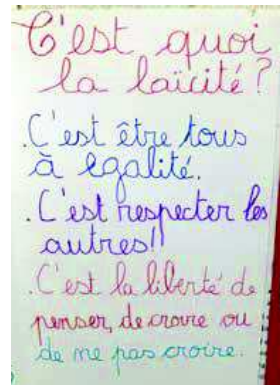 C'est quoi
la laïcité?
.C'est être tous
à égalité.
.C'est respecter les
autres!!
.C'est la liberté de
penser, de croire ou
de ne pas croire.